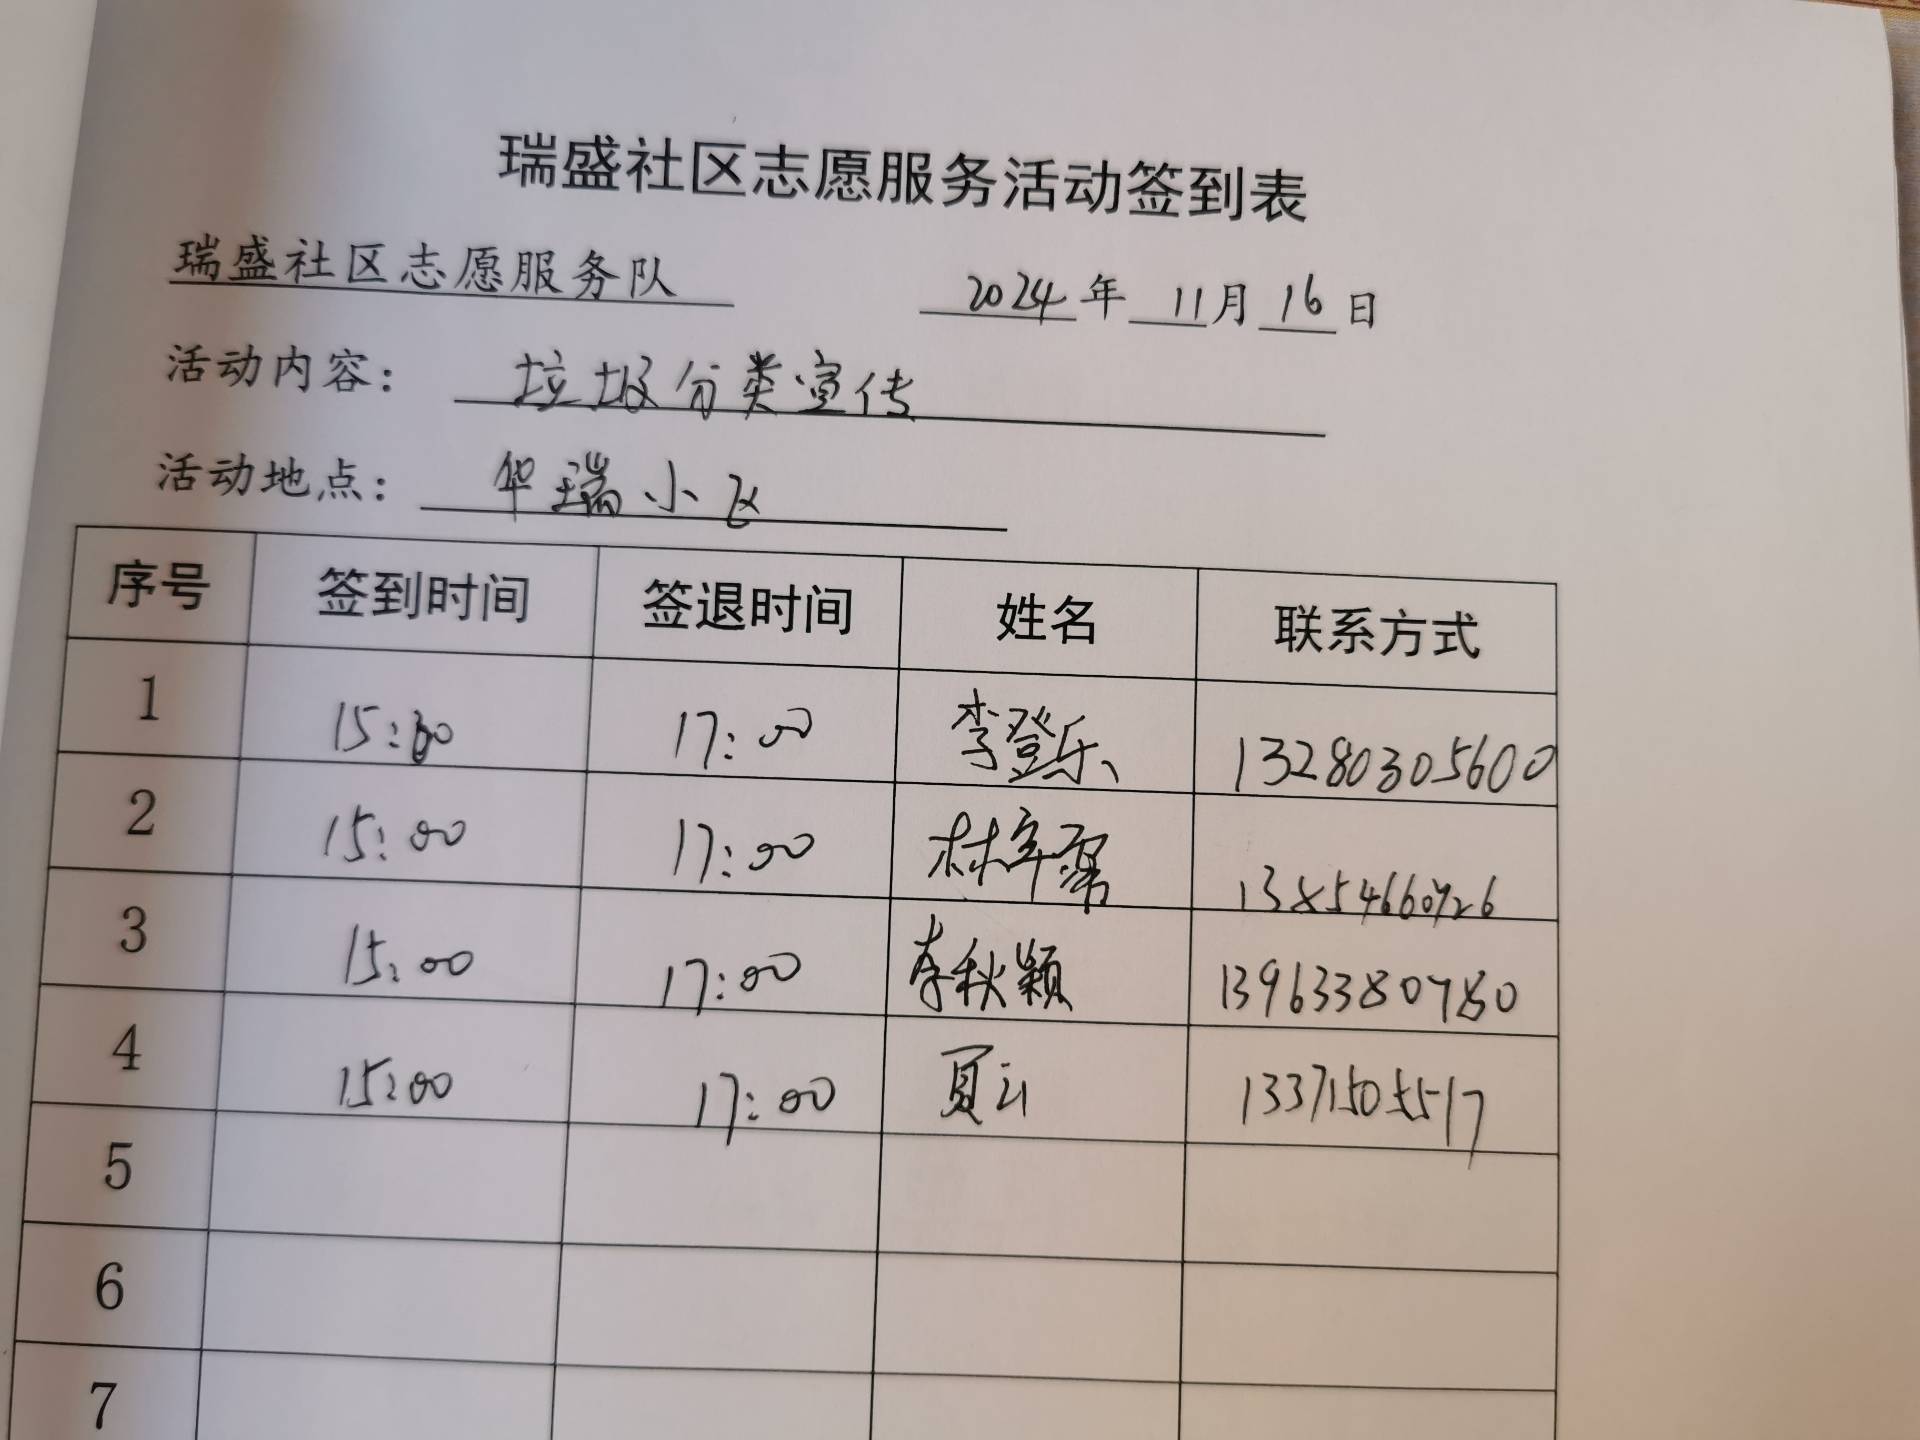 瑞盛社区志愿服务活动签到表
瑞盛社区志愿服务队 2024年 11月 16日
活动内容: 垃圾分类宣传
活动地点: 华瑞小区
序号 签到时间 签退时间 姓名 联系方式
1 15:00 17:00 李登乐 13280305600
2 15:00 17:00 林
3 15:00 17:00 李秋颖 13963380780
4 15:00 17:00 13371505517
5
6
7